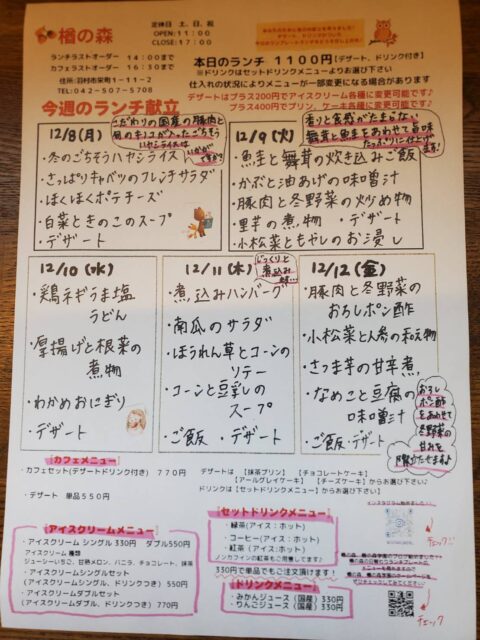 楢の森
定休日 土、日、祝
OPEN:11:00
CLOSE:17:00
ランチラストオーダー 14:00まで
カフェラストオーダー 16:30まで
住所:羽村市栄町1-11-2
TEL:042-507-5708
本日のランチ 1100円(デザート、ドリンク付き)
※ドリンクはセットドリンクメニューよりお選び下さい
仕入れの状況によりメニューが一部変更になる場合があります
デザートはプラス200円でアイスクリーム各種に変更可能です♪
プラス400円でプリン、ケーキ各種に変更可能です♪
今週のランチ献立
12/8(月)
こだわりの国産の豚肉と
ハヤシライスは
いかがですか?
・冬のごちそうハヤシライス
・さっぱりキャベツのフレンチサラダ
・ほくほくポテチーズ
・白菜ときのこのスープ
・デザート
12/9(火)
香りと食感がたまらない
舞茸と魚圭をあわせて旨味
たっぷりに仕上げます!
・魚圭と舞茸の炊き込みご飯
・かぶと油あげの味噌汁
・豚肉と冬野菜の炒め物
・里芋の煮物 ・デザート
・小松菜ともやしのお浸し
12/10(水)
・鶏ネギうま塩
うどん
・厚揚げと根菜の
煮物
・わかめおにぎり
・デザート
12/11(木)
じっくりと
煮込み
・煮込みハンバーグ
・南瓜のサラダ
・ほうれん草とコーンの
ソテー
・コーンと豆乳の
スープ
・ご飯 ・デザート
12/12(金)
・豚肉と冬野菜の
おろしポン酢
・小松菜と人参の和え物
・さつま芋の甘辛煮
・なめこと豆腐の
味噌汁
・ご飯・デザート
おろし
ポン酢
をあわせて
冬野菜の
甘みを
カフェメニュー
・カフェセット(デザートドリンク付き) 770円
・デザート 単品550円
デザートは 【抹茶プリン】 【チョコレートケーキ】
【アールグレイケーキ】 【チーズケーキ】からお選び下さい
ドリンクは【セットドリンクメニュー】からお選び下さい
アイスクリームメニュー
・アイスクリーム シングル 330円 ダブル550円
アイスクリーム 種類
ジューシーいちご、甘熟メロン、バニラ、チョコレート、抹茶
・アイスクリームシングルセット
(アイスクリームシングル、ドリンクつき) 550円
・アイスクリームダブルセット
(アイスクリームダブル、ドリンクつき) 770円
セットドリンクメニュー
・緑茶(アイス:ホット)
・コーヒー(アイス:ホット)
・紅茶(アイス:ホット)
ノンカフェインの紅茶もご用意してます?
330円で単品でもご注文頂けます!
ドリンクメニュー
・みかんジュース(国産) 330円
・りんごジュース(国産) 330円
インスタグラム始めました!!
チェック!!
チェック